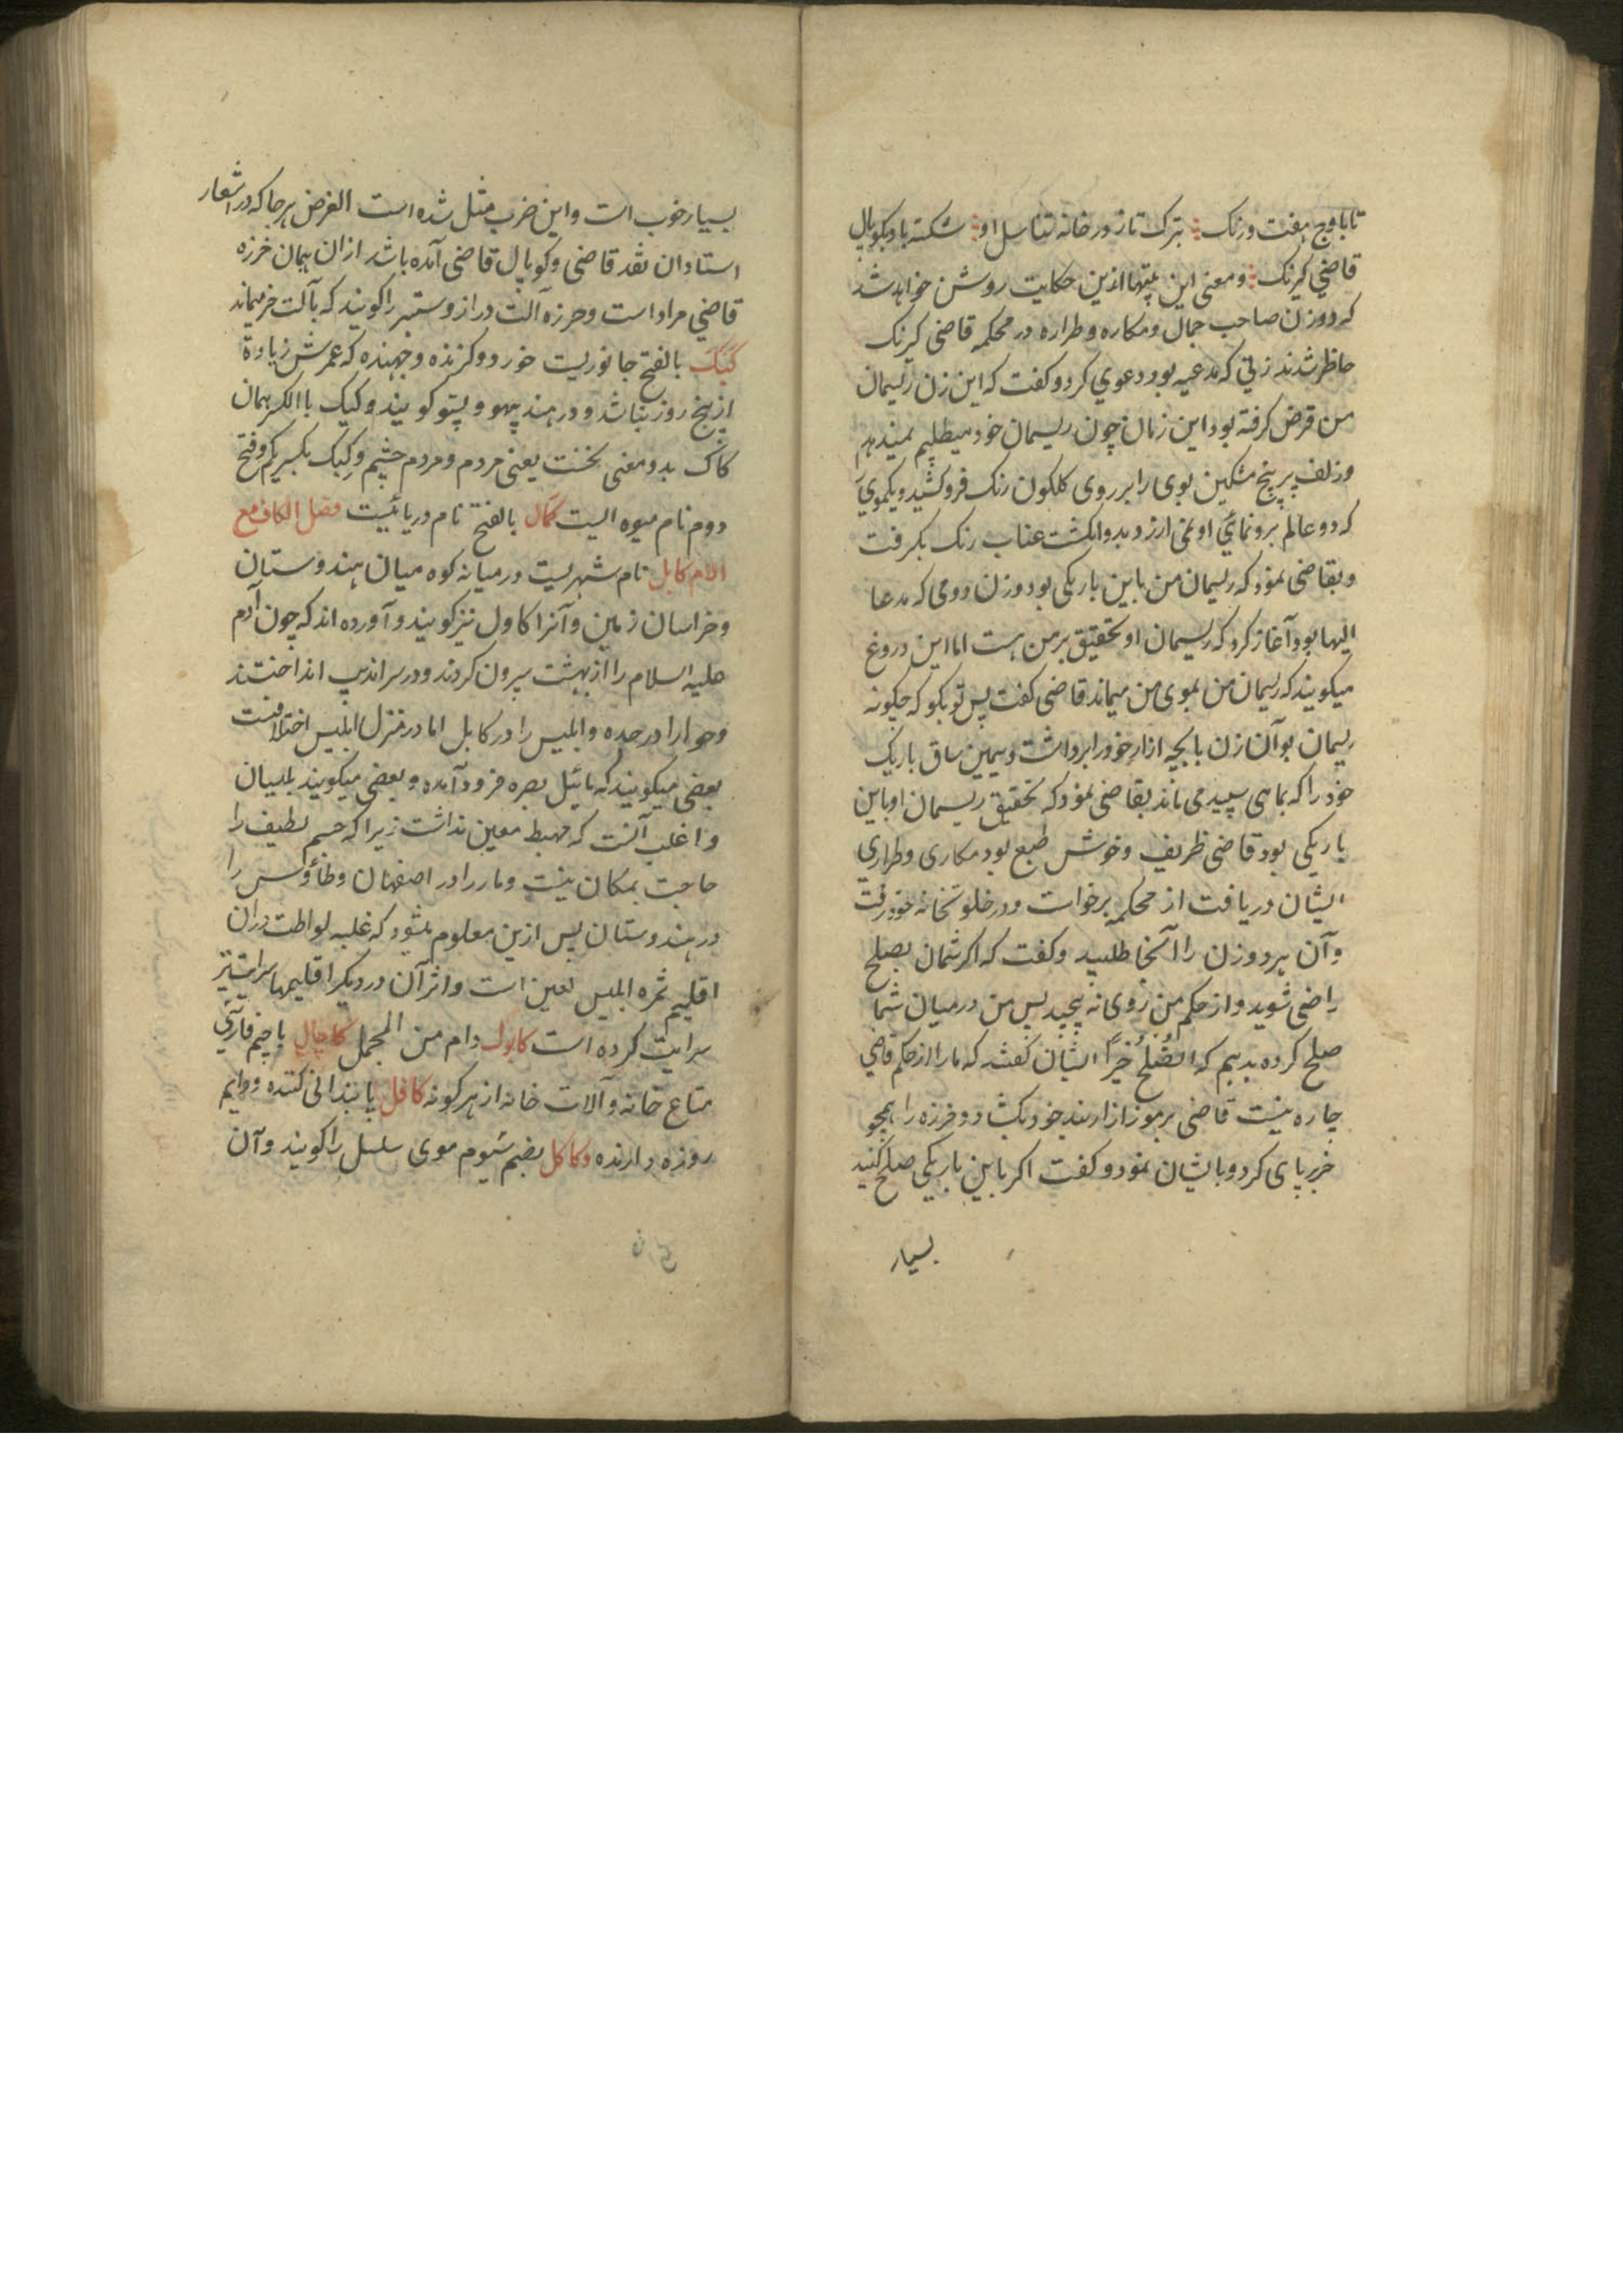 تا باوج هفت ورنک بترک تاز در خانه تناسل او شکسته باد بکوپال
قاضی کیرنک و معنی این بیتها ازین حکایت روشن خواهد شد
که دو زن صاحب جمال و مکاره و طراره در محکمه قاضی کیرنک
حاظر شدند زنی که مدعیه بود دعوی کرد و کفت که این زن ریسمان
من قرض کرفته بود این زمان چون ریسمان خود میطلبم نمیدهم
و زلف پرپیچ مشکین بوی را بر روی کلکون رنک فرو کشید و یکموی را
که دو عالم برونمائی او نمی ارزد بدو انکشت عناب رنک بکرفت
و بقاضی نمود که ریسمان من باین باریکی بود و زن دومی که مدعا
الیها بود آغاز کرد که ریسمان او تحقیق بر من هست اما این دروغ
میکویند که ریسمان من بموی من میماند قاضی کفت پس تو بکو که چکونه
ریسمان بود آن زن پایچه ازار خود را برداشت و سیمین ساق باریک
خود را که بماهی سپید می ماند بقاضی نمود که تحقیق ریسمان او باین
باریکی بود قاضی ظریف و خوش طبع بود مکاری و طراری
ایشان دریافت از محکمه برخواست و در خلوتخانه خود رفت
و آن هر دو زن را آنجا طلبید و کفت که اکر شمان بصلح
راضی شوید و از حکم من روی نه پیچید پس من درمیان شما
صلح کرده بدهم که الصُلحُ خیرٌ ایشان کفتند که مارا از حکم قاضی
چاره نیست قاضی برموز ازاربند خود بکشاد و خرزه را همچو
خر برپای کرد و بایشان نمود و کفت اکر باین باریکی صلح کنید
بسیار
بسیار خوب است و این ضرب مثل شده است الغرض هرجا که در اشعار
استادان نقد قاضی و کوپال قاضی آمده باشد ازان همان خرزه
قاضی مراد است و خرزه آلت دراز و ستبر را کویند که بآلت خر میماند
کَیَک بالفتح جانوریست خورد و کزنده و جهنده که عمرش زیادة
از پنج روز نباشد و در هند پیهو و پستو کویند و کیک باالکسر همان
کاک بدو معنی نخست یعنی مردم و مردم چشم وکِیَک بکسر یکم و فتح
دوم نام میوه ایست کَمَال بالفتح نام دریائیست فصل الکاف مع
اللام کابل نام شهریست درمیانه کوه میان هندوستان
و خراسان زمین و آنرا کاول نیز کویند و آورده اند که چون آدم
علیه السلام را از بهشت بیرون کردند و در سراندیب انداختند
و حوا را در جده و ابلیس را در کابل اما در منزل ابلیس اختلافست
بعضی میکویند که بائیل بصره فرود آمده و بعضی میکویند بلسیان
و اغلب آنست که مهبط معین نداشت زیرا که جسم لطیف را
حاجت بمکان نیست و مار را در اصفهان و طاؤس را
در هندوستان پس ازین معلوم میشود که غلبه لواطت دران
اقلیم ثمره ابلیس لعین است و اثر آن در دیکر اقلیمها سرایت نیز
سرایت کرده است کابول دام من المجمل کاچال باجیم فارسی
متاع خانه و آلات خانه از هر کونه کافل پایندانی کننده و دایم
روزه دارنده و کاکل بضم سیوم موی سلسل را کویند و آن